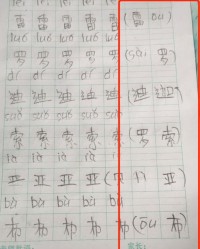 lei lei lei lei
雷 雷 雷 雷 (雷 ou)
luó luó luó luó
罗 罗 罗 罗 (sài 罗)
dí dí dí dí
迪 迪 迪 迪 (迪 迦)
suǒ suǒ suǒ suǒ
索 索 索 索 (罗 索)
yà
亚 亚 亚 亚 ( 亚)
bù bù bù bù
布 布 布 布 (ōu 布)